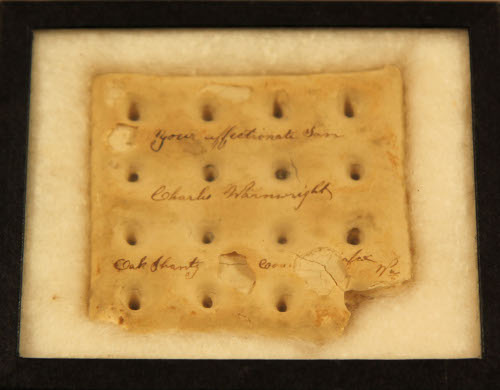 Your affectionate Son
Charlie Wainwright
Oak Shanty